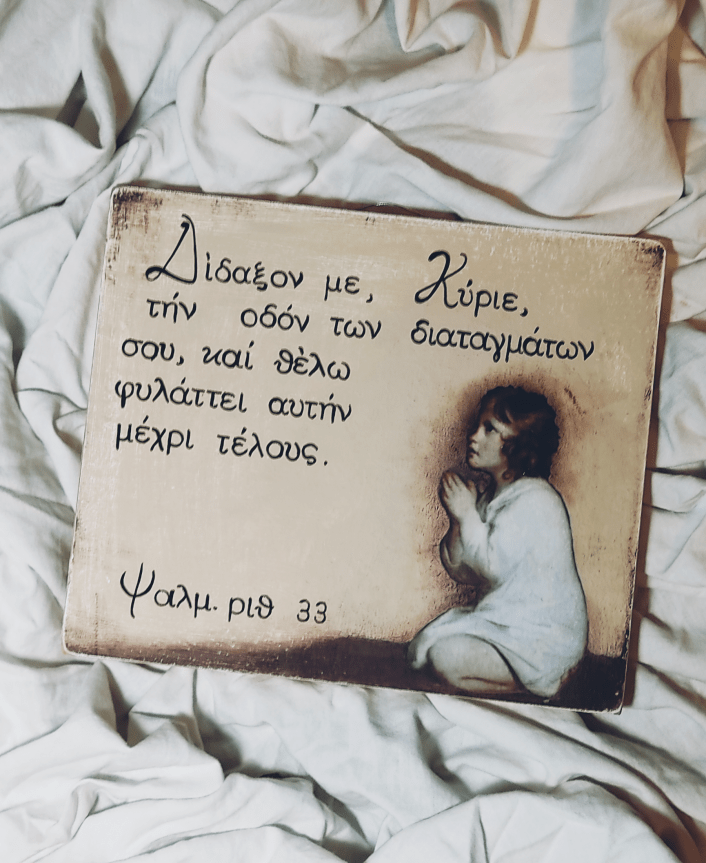 Δίδαξον με, Κύριε,
τήν οδόν των διαταγμάτων
σου, καί θὲλω
φυλάττει αυτήν
μέχρι τέλους.
Ψαλμ. ριθ 33